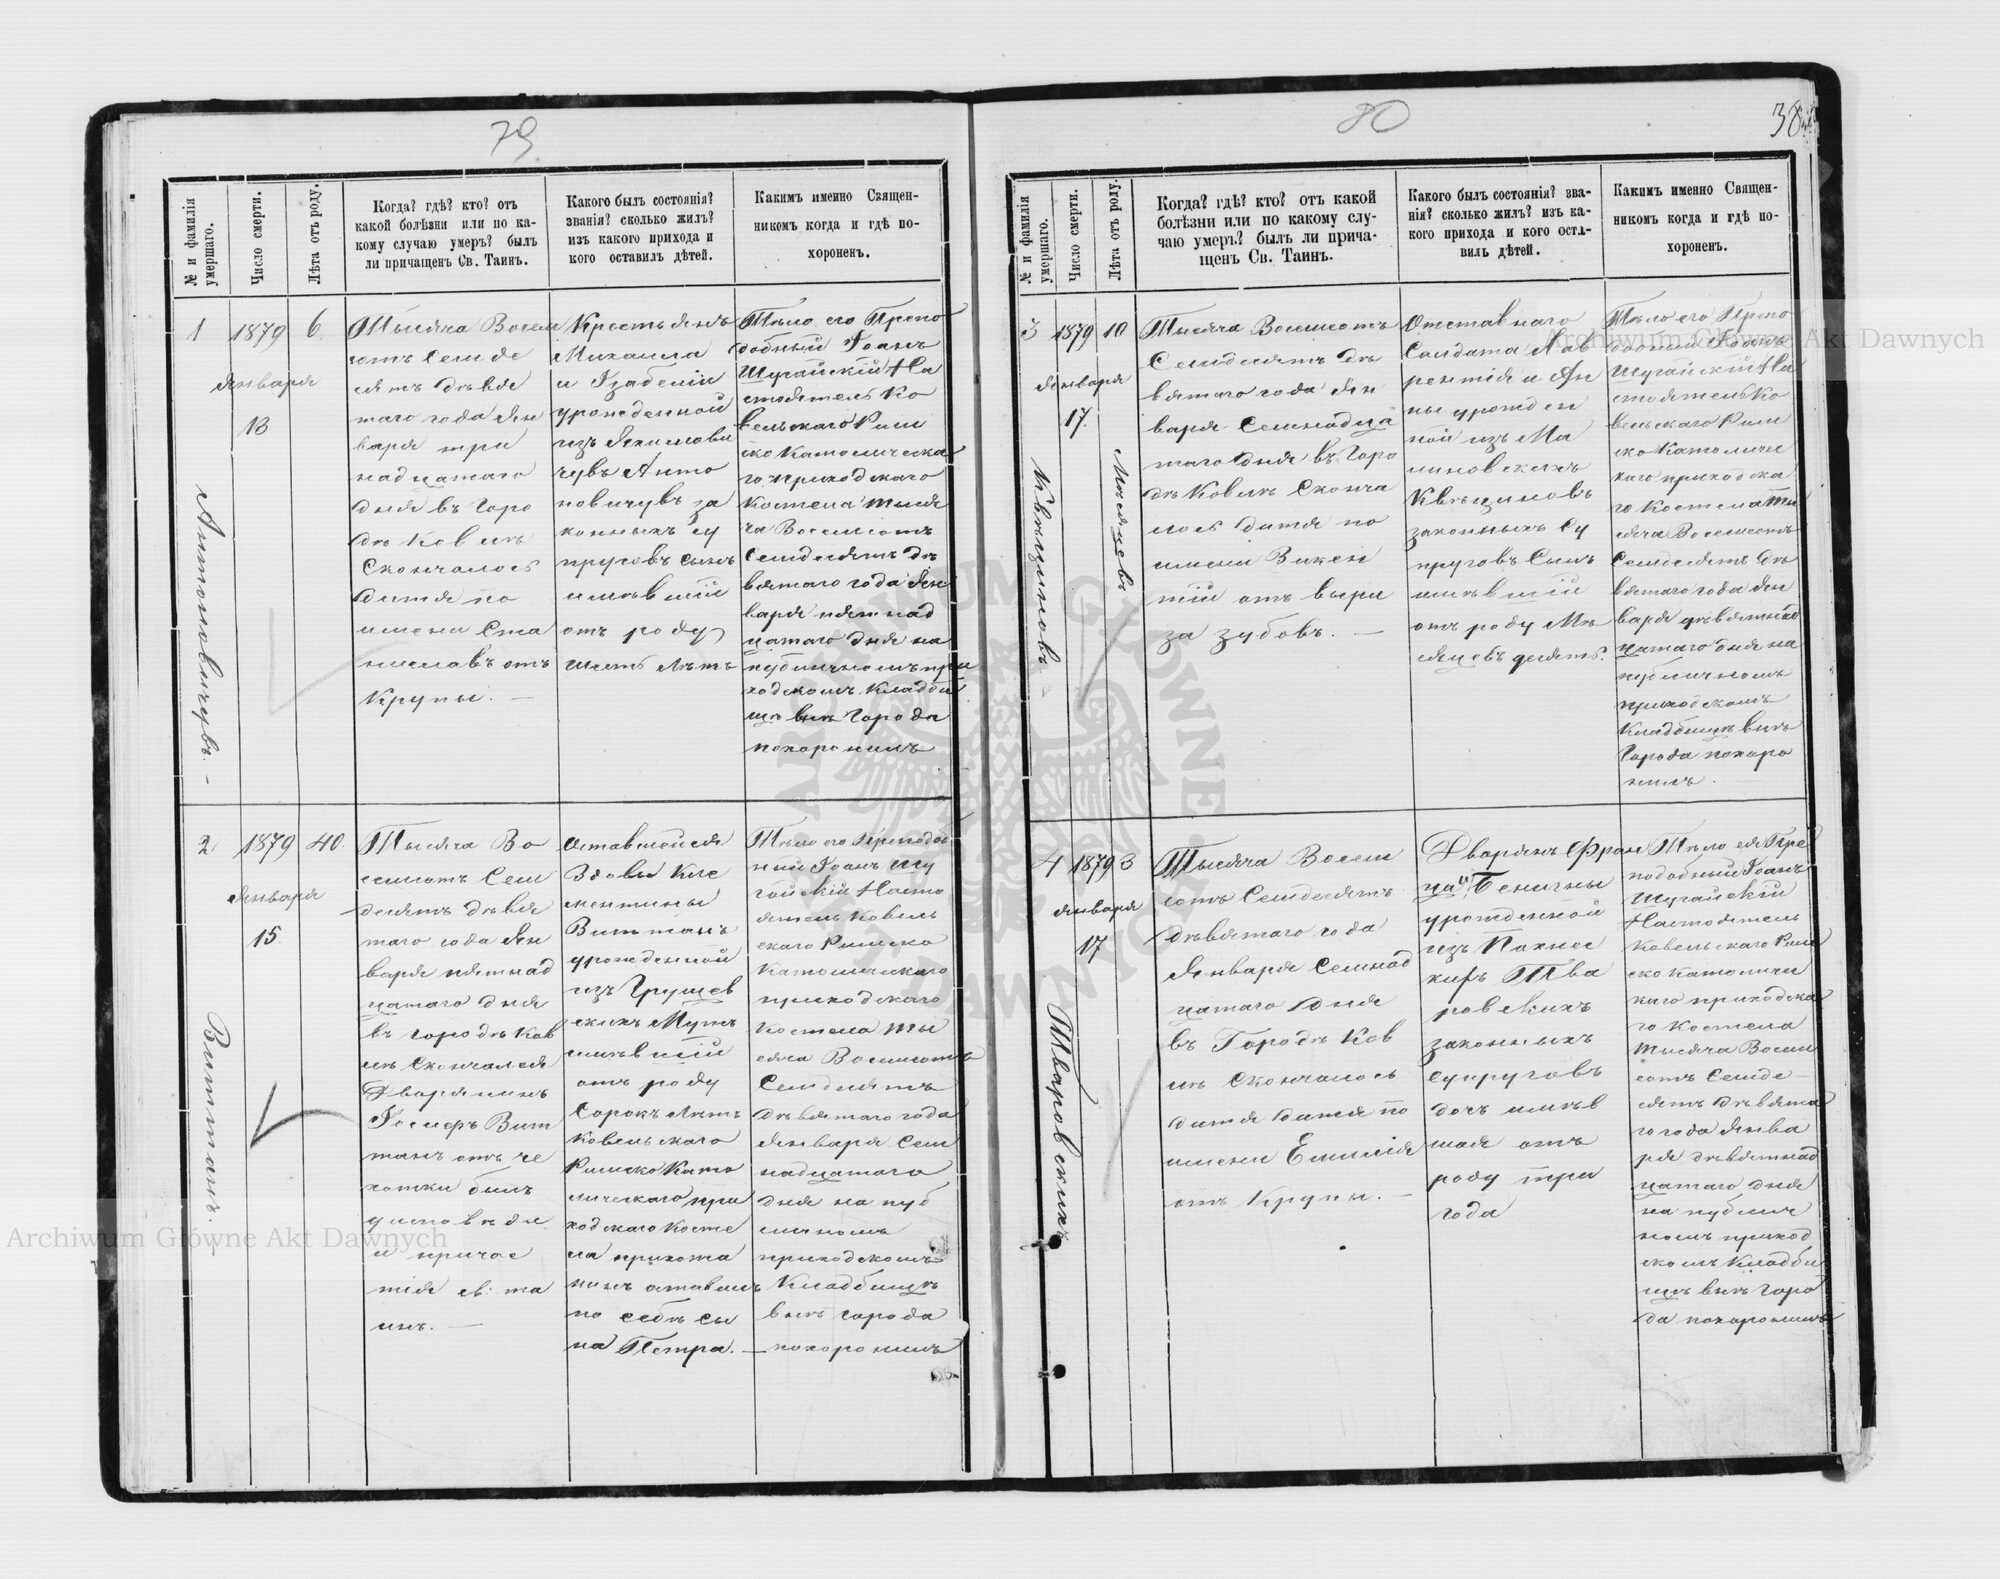 79
№ и фамилія умершаго.
Число смерти.
Лѣта отъ роду.
Когда? гдѣ? кто? отъ
какой болѣзни или по ка-
кому случаю умеръ? былъ
ли причащенъ Св. Таинъ.
Какого былъ состоянія?
званія? сколько жилъ?
изъ какого прихода и
кого оставилъ дѣтей.
Какимъ именно Священ-
никомъ когда и гдѣ по-
хороненъ.
1
Антоновичувъ. –
1879
Января
13
6
Тысяча Восем
сотъ Семьде
сятъ девя
таго года Ян
варя три
надцатаго
дня въ Горо
дѣ Ковлѣ
Скончалось
дитя по
имени Ста
ниславъ отъ
Крупы. –
Крестьянъ
Михаила
и Изабеліи
урожденной
изъ
чувъ Анто
новичувъ за
конныхъ су
пруговъ сынъ
имѣвшій
отъ роду
шесть лѣтъ
Тѣло его Препо
добный Іоанъ
Шугайскій На
стоятель Ко
вельскаго Рим
ско Католическа
го приходскаго
Костела тыся
ча Восемсотъ
Семдесятъ де
вятаго года Ян
варя пятнад
цатаго дня на
публичномъ при
ходскомъ Кладби
щѣ внѣ Города
похоронилъ
2
Виттанъ. –
1879
Января
15
40.
Тысяча Во
семсотъ Сем
десятъ девя
таго года Ян
варя пятнад
цатаго дня
въ городѣ Ков
лѣ Скончался
Дворянинъ
Виt
танъ отъ че
хотки былъ
у исповѣди
и причас
тія св: та
инъ. –
Оставшейся
Вдовы Кле
ментины
Виттанъ
урожденной
изъ Грушев
скихъ Мужъ
имѣвшій
отъ роду
Сорокъ лѣтъ
Ковельскаго
Римско Като
лическаго при
ходскаго Косте
ла прихожа
нинъ оставилъ
по себѣ сы
на Петра. –
Тѣло его Преподоб
ный Іоанъ Шу
гайскій Насто
ятель Ковель
скаго Римско
Католическаго
приходскаго
Костела ты
сяча Восемсотъ
Семдесятъ
девятаго года
Января Сем
надцатаго
дня на пуб
личномъ
приходскомъ
Кладбищѣ
внѣ города
похоронилъ
80
38
№ и фамилія умершаго.
Число смерти.
Лѣта отъ роду.
Когда? гдѣ? кто? отъ какой
болѣзни или по какому слу-
чаю умеръ? былъ ли прича-
щенъ Св. Таинъ.
Какого былъ состоянія? зва-
нія? сколько жилъ? изъ ка-
кого прихода и кого оста-
вилъ дѣтей.
Какимъ именно Священ-
никомъ когда и гдѣ по-
хороненъ.
3
1879
Января
17.
10
Мѣсяцевъ
Тысяча Восемсотъ
Семдесятъ де
вятаго года Ян
варя Семнадца
таго дня въ Горо
дѣ Ковлѣ Сконча
лось дитя по
имени Викен
тій отъ выри
за зубовъ. –
Отставнаго
Солдата Лав
рентія и Ан
ны урожден
ной изъ Ма
линовскихъ
законныхъ Су
пруговъ Сынъ
имѣвшій
отъ роду Мѣ
сяцевъ десять.
Тѣло его Препо
добный Іоанъ
Шугайскій На
стоятель Ко
вельскаго Рим
ско Католиче
скаго приходска
го Костела Ты
сяча Восемсотъ
Семдесятъ де
вятаго года Ян
варя девятнад
цатаго дня на
публичномъ
приходскомъ
Кладбищѣ внѣ
Города похоро
нилъ.
4
Тваровскихъ
1879
Января
17
3
Тысяча Восем
сотъ Семдесятъ
девятаго года
Января Семнад
цатаго дня
въ Городѣ Ков
лѣ Скончалось
дитя дитя по
имени Емилія
отъ Крупы. –
Дворянъ Фран
ца и Бенигны
урожденной
изъ
Тва
ровскихъ
законныхъ
Супруговъ
дочь имѣв
шая отъ
роду три
года
Тѣло ея Пре
подобный Іоанъ
Шугайскій
Настоятель
Ковельскаго Рим
ско Католиче
скаго приходска
го Костела
тысяча Восем
сотъ Семде
сятъ девята
го года Янва
ря девятнад
цатаго дня
на публич
номъ приход
скомъ Кладби
щѣ внѣ Горо
да похоронилъ
Archiwum Główne Akt Dawnych
Archiwum Główne Akt Dawnych